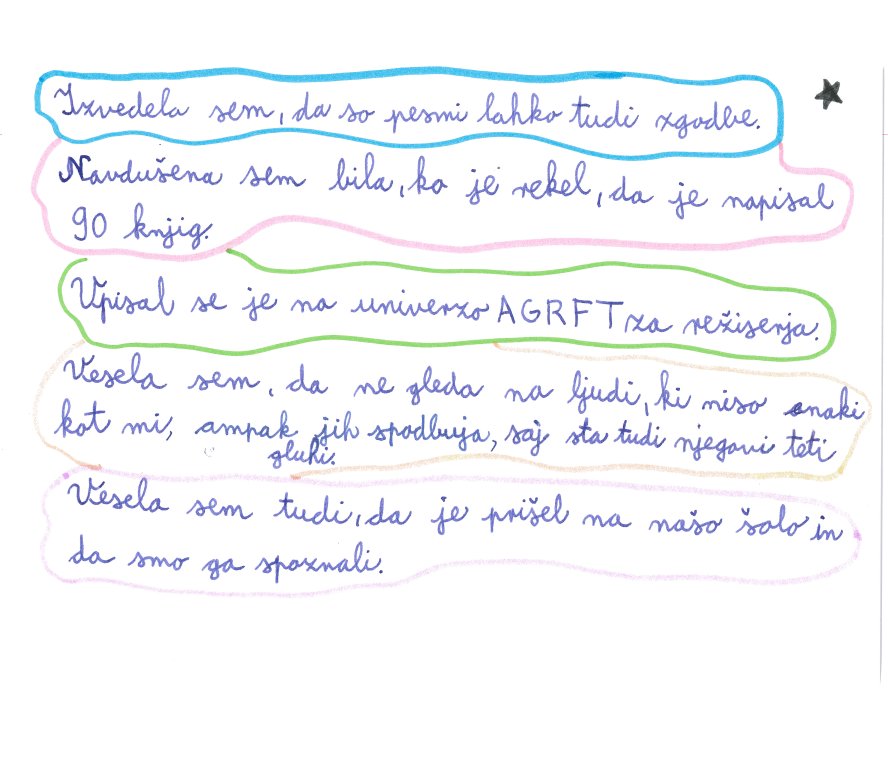 Izvedela sem, da so pesmi lahko tudi zgodbe.
Navdušena sem bila, ko je rekel, da je napisal
90 knjig.
Vpisal se je na univerzo AGRFT za režiserja.
Vesela sem, da ne gleda na ljudi, ki niso enaki
kot mi, ampak jih spodbuja, saj sta tudi njegovi teti
gluhi.
Vesela sem tudi, da je prišel na našo šolo in
da smo ga spoznali.